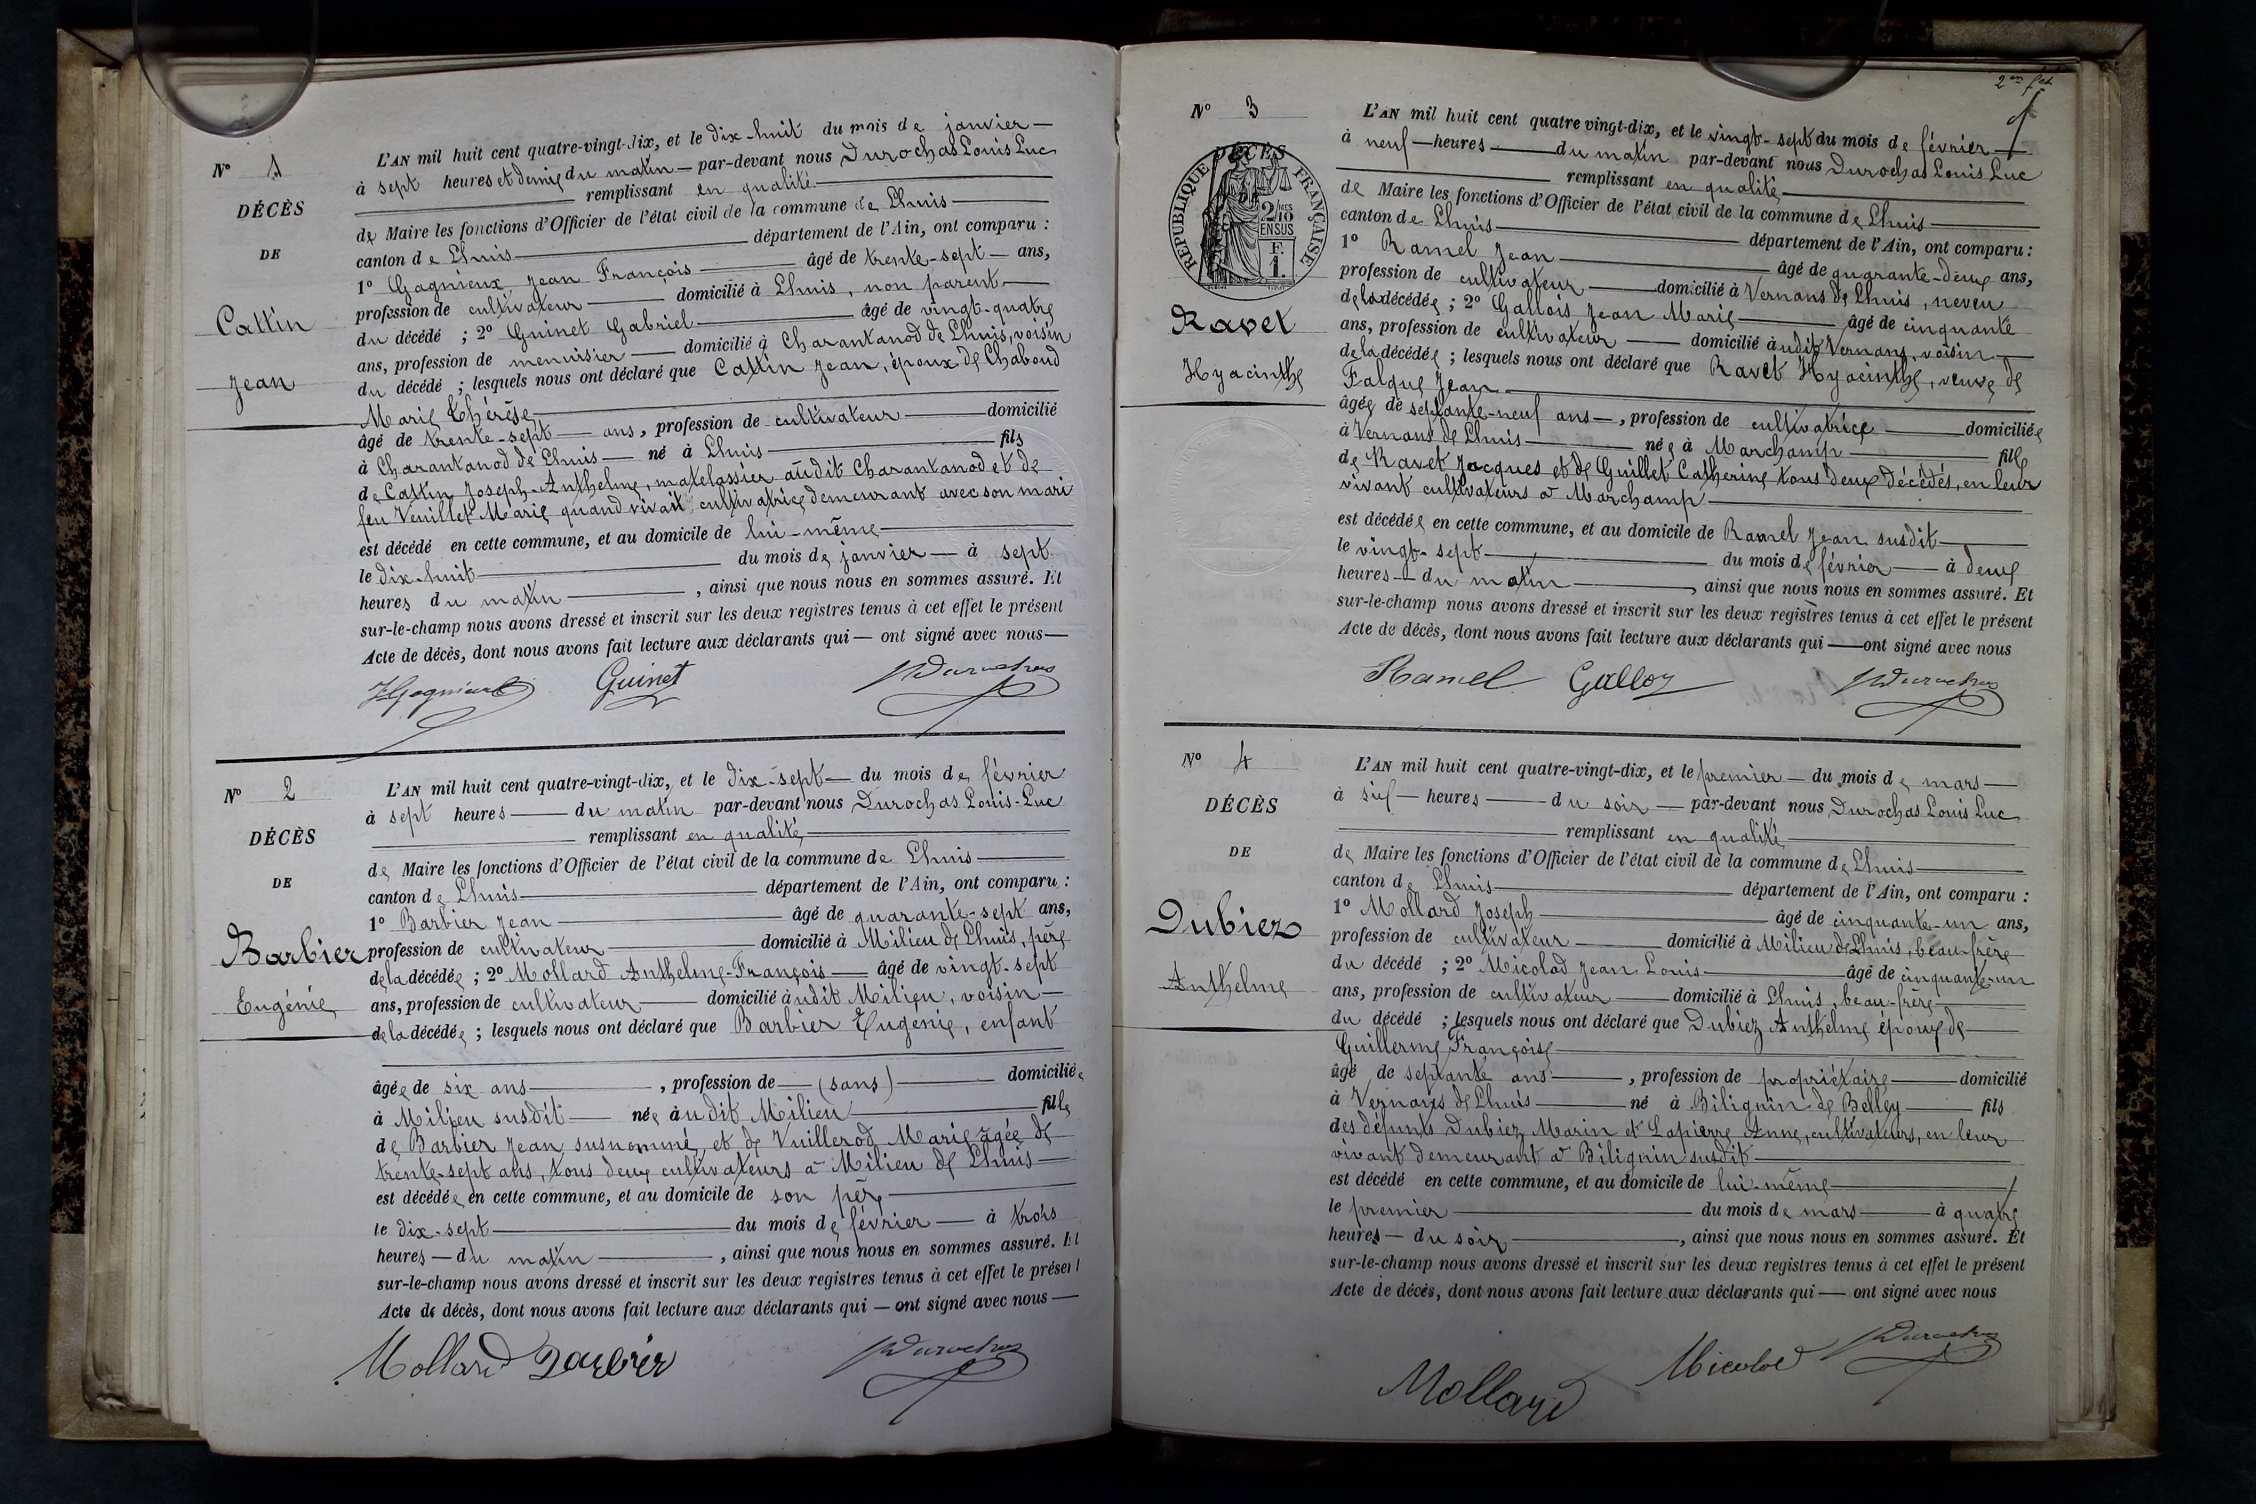 N° 1
DÉCÈS
DE
Cattin
Jean
L'AN mil huit cent quatre-vingt-dix, et le dix-huit du mois de janvier
à sept heures et demie du matin par-devant nous Durochas Louis Luc
remplissant en qualité
de Maire les fonctions d'Officier de l'état civil de la commune de Lhuis
canton de Lhuis département de l'Ain, ont comparu :
1° Gagnieux Jean François âgé de trente-sept ans,
profession de cultivateur domicilié à Lhuis, non parent
du décédé ; 2° Guinet Gabriel âgé de vingt-quatre
ans, profession de menuisier domicilié à Charantanod de Lhuis, voisin
du décédé ; lesquels nous ont déclaré que Cattin Jean, époux de Chaboud
Marie Thérèse
âgé de trente-sept ans, profession de cultivateur domicilié
à Charantanod de Lhuis né à Lhuis fils
de Cattin Joseph-Anthelme, matelassier audit Charantanod et de
feu Veuillet Marie quand vivait cultivatrice demeurant avec son mari
est décédé en cette commune, et au domicile de lui-même
le dix-huit du mois de janvier à sept
heures du matin, ainsi que nous nous en sommes assuré. Et
sur-le-champ nous avons dressé et inscrit sur les deux registres tenus à cet effet le présent
Acte de décès, dont nous avons fait lecture aux déclarants qui ont signé avec nous
Guinet Durochas
N° 2
DÉCÈS
DE
Barbier
Eugénie
L'AN mil huit cent quatre-vingt-dix, et le dix-sept du mois de février
à sept heures du matin par-devant nous Durochas Louis-Luc
remplissant en qualité
de Maire les fonctions d'Officier de l'état civil de la commune de Lhuis
canton de Lhuis département de l'Ain, ont comparu :
1° Barbier Jean âgé de quarante-sept ans,
profession de cultivateur domicilié à Milieu de Lhuis, père
de la décédée ; 2° Mollard Anthelme-François âgé de vingt-sept
ans, profession de cultivateur domicilié audit Milieu, voisin
de la décédée ; lesquels nous ont déclaré que Barbier Eugénie, enfant
âgée de six ans, profession de (sans) domiciliée
à Milieu susdit née audit Milieu fille
de Barbier Jean susnommé et de Vuillerod Marie âgée de
trente-sept ans, tous deux cultivateurs à Milieu de Lhuis
est décédée en cette commune, et au domicile de son père
le dix-sept du mois de février à trois
heures du matin, ainsi que nous nous en sommes assuré. Et
sur-le-champ nous avons dressé et inscrit sur les deux registres tenus à cet effet le présent
Acte de décès, dont nous avons fait lecture aux déclarants qui ont signé avec nous
Mollard Barbier Durochas
N° 3
RÉPUBLIQUE FRANÇAISE
2/10MES
EN SUS
F.
1.
DÉCÈS
Ravet
Hyacinthe
L'AN mil huit cent quatre vingt-dix, et le vingt-sept du mois de février
à neuf heures du matin par-devant nous Durochas Louis Luc
remplissant en qualité
de Maire les fonctions d'Officier de l'état civil de la commune de Lhuis
canton de Lhuis département de l'Ain, ont comparu :
1° Ramel Jean âgé de quarante-deux ans,
profession de cultivateur domicilié à Vernans de Lhuis, neveu
de la décédée ; 2° Gallois Jean Marie âgé de cinquante
ans, profession de cultivateur domicilié audit Vernans, voisin
de la décédée ; lesquels nous ont déclaré que Ravet Hyacinthe, veuve de
Falque Jean
âgée de septante-neuf ans, profession de cultivatrice domiciliée
à Vernans de Lhuis née à Marchamp fille
de Ravet Jacques et de Guillet Catherine tous deux décédés, en leur
vivant cultivateurs à Marchamp
est décédée en cette commune, et au domicile de Ramel Jean susdit
le vingt-sept du mois de février à deux
heures du matin, ainsi que nous nous en sommes assuré. Et
sur-le-champ nous avons dressé et inscrit sur les deux registres tenus à cet effet le présent
Acte de décès, dont nous avons fait lecture aux déclarants qui ont signé avec nous
Ramel Galloy Durochas
N° 4
DÉCÈS
DE
Dubiez
Anthelme
L'AN mil huit cent quatre-vingt-dix, et le premier du mois de mars
à six heures du soir par-devant nous Durochas Louis Luc
remplissant en qualité
de Maire les fonctions d'Officier de l'état civil de la commune de Lhuis
canton de Lhuis département de l'Ain, ont comparu :
1° Mollard Joseph âgé de cinquante-un ans,
profession de cultivateur domicilié à Milieu de Lhuis, beau-frère
du décédé ; 2° Micolod Jean Louis âgé de cinquante-un
ans, profession de cultivateur domicilié à Lhuis, beau-frère
du décédé ; lesquels nous ont déclaré que Dubiez Anthelme époux de
Guillerme Françoise
âgé de septante ans, profession de propriétaire domicilié
à Vernans de Lhuis né à Bilignin de Belley fils
des défunts Dubiez Marin et Lapierre Anne, cultivateurs, en leur
vivant demeurant à Bilignin susdit
est décédé en cette commune, et au domicile de lui-même
le premier du mois de mars à quatre
heures du soir, ainsi que nous nous en sommes assuré. Et
sur-le-champ nous avons dressé et inscrit sur les deux registres tenus à cet effet le présent
Acte de décès, dont nous avons fait lecture aux déclarants qui ont signé avec nous
Mollard Micolod Durochas